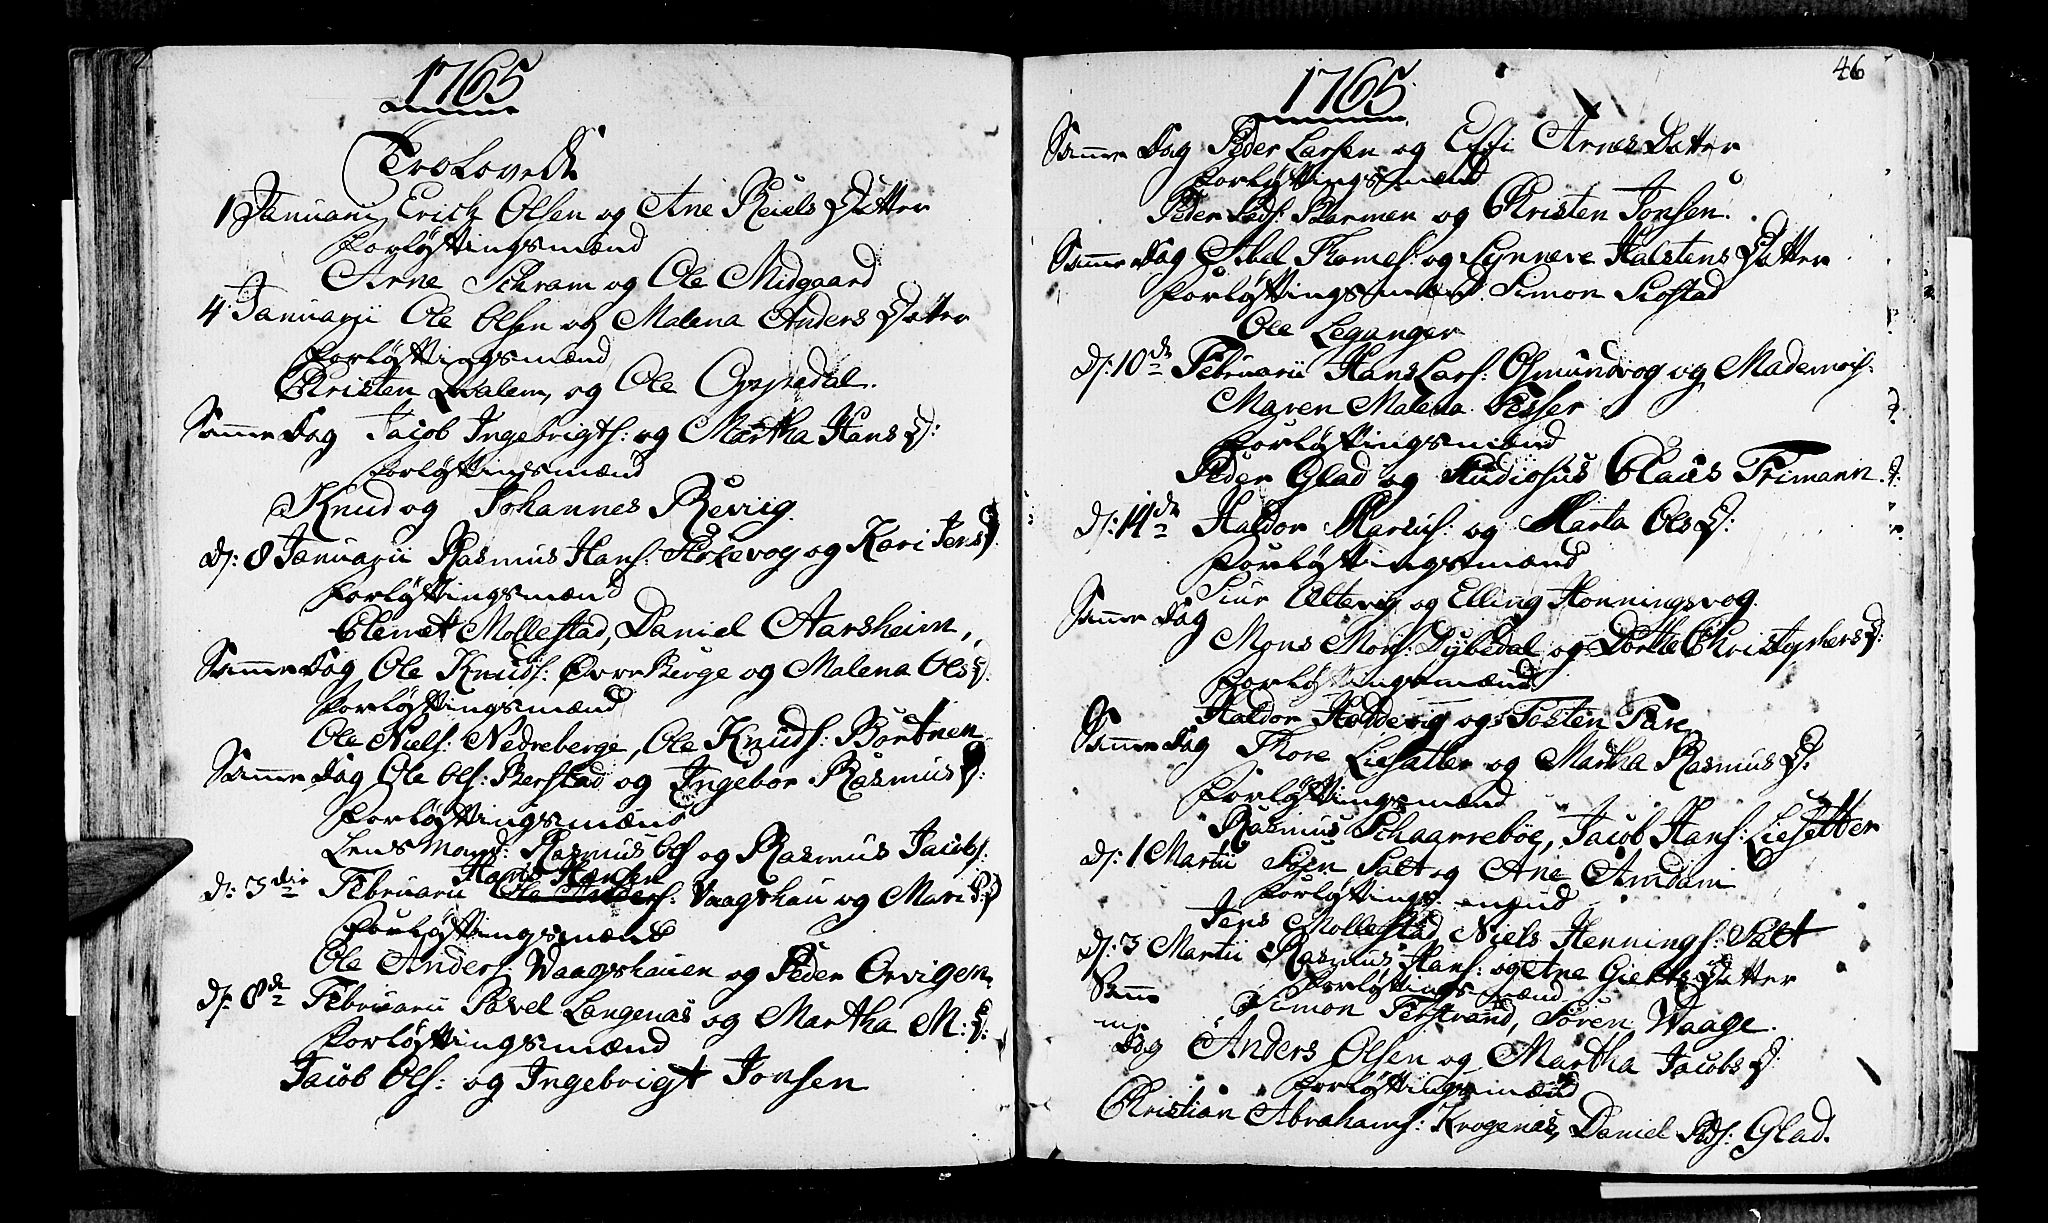 1765
Trolovede
1 Januarii Erich Olsen og Ane Reiels Datter
Forløftingsmænd
Arne Schram og Ole Midgaard
4 Januarii Ole Olsen og Malena Anders Datter
Forløftingsmænd
Christen Qvalem, og Ole Oppedal.
Samme Dag Jacob Ingebrigts: og Martha Hans D:
Forløftingsmænd
Knud og Johannes Revig.
D: 8 Januarii Rasmus Hans: Holevog og Kari Jens D
Forløftingsmænd
Clemet Mollestad, Daniel Aarsheim,
Samme Dag Ole Knuds: Øvre Berge og Malena Ols D.
Forløftingsmænd
Ole Niels: Nedreberge, Ole Knuds: Bortnen
Samme Dag Ole Ols: Berstad og Ingebor Rasmus D:
Forløftingsmænd
Lensmand: Rasmus Ols og Rasmus Jacobs:
Hans Hansen
D: 3die Februarii Ole Anders: Vaagshau og Mari P: D
Forløftingsmænd
Ole Anders: Waagshauen og Peder Orvigen
D: 8de Februarii Pavel Langenæs og Martha M: D:
Forløftingsmænd
Jacob Ols: og Ingebrigt Jonsen
46
1765
Samme Dag Peder Larsen og Essi Arnes Datter
Forløftingsmænd
Peder Peds: Barmen og Christen Jonsen.
Samme Dag Thomes: og Synneve Halstens Datter
Forløftingsmænd. Simon Siostad
Ole Leganger
D: 10de Februarii Hans Lars: Osmundvog og Mademois:
Maren Malena Fesser
Forløftingsmænd
Peder Glad og Studiosus Claus Frimann.
D: 14de Haldor Marius: og Marta Ols D:
Forløftingsmænd
Siur Altevig og Elling Honningsvog.
Samme Dag
Mons Mons: Dybedal og Dorthe Christophers D:
Forløftingsmænd
Haldor Haldevig og Tosten Fare
Samme Dag Thore Liesetter og Martha Rasmus D:
Forløftingsmænd
Rasmus Schaarreböe, Jacob Hans: Liesetter
D: 1 Martii Søen Salt og Ane Amdam
Forløftingsmænd
Jens Mollestad Niels Hennings: Salt
D: 3 Martii Rasmus Hans: og Ane Gierts Datter
Forløftingsmænd
Samme Simon Ferstrand, Søren Waage.
Dag Anders Olsen og Martha Jacobs D:
Forløftingsmænd
Christian Abrahams: Krogenæs, Daniel Peds: Glad.